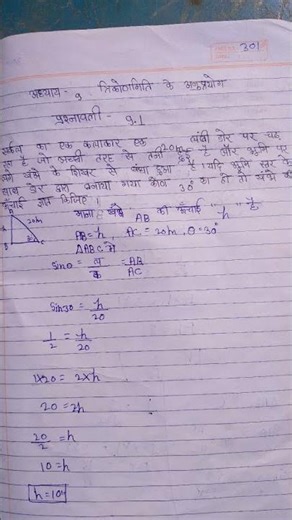 301
अध्याय - 9 त्रिकोणमिति के अनुप्रयोग
प्रश्नावली - 9.1
सर्कस का एक कलाकार एक 20m लंबी डोर पर चढ़
रहा है जो अच्छी तरह से तनी हुई है और भूमि पर
सीधे खंभे के शिखर से बंधा हुआ है यदि भूमि स्तर के
साथ डोर द्वारा बनाया गया कोण 30° का हो तो खंभे की
ऊँचाई ज्ञात कीजिए।
A 20m B C
माना खंभे AB की ऊँचाई "h" है
AB = h, AC = 20m, θ = 30°
ΔABC में
sinθ = ल/क = AB/AC
sin30 = h/20
1/2 = h/20
1×20 = 2×h
20 = 2h
20/2 = h
10 = h
h = 10m